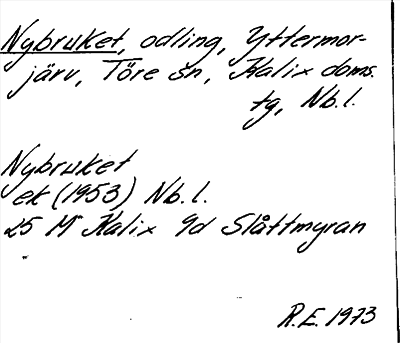 Nybruket, odling, Yttermor-
järv, Töre sn, Kalix doms.
tg, Nb.l.
Nybruket
ek (1953) Nb.l.
25 M Kalix 9d Slåttmyran
"
R.E. 1973